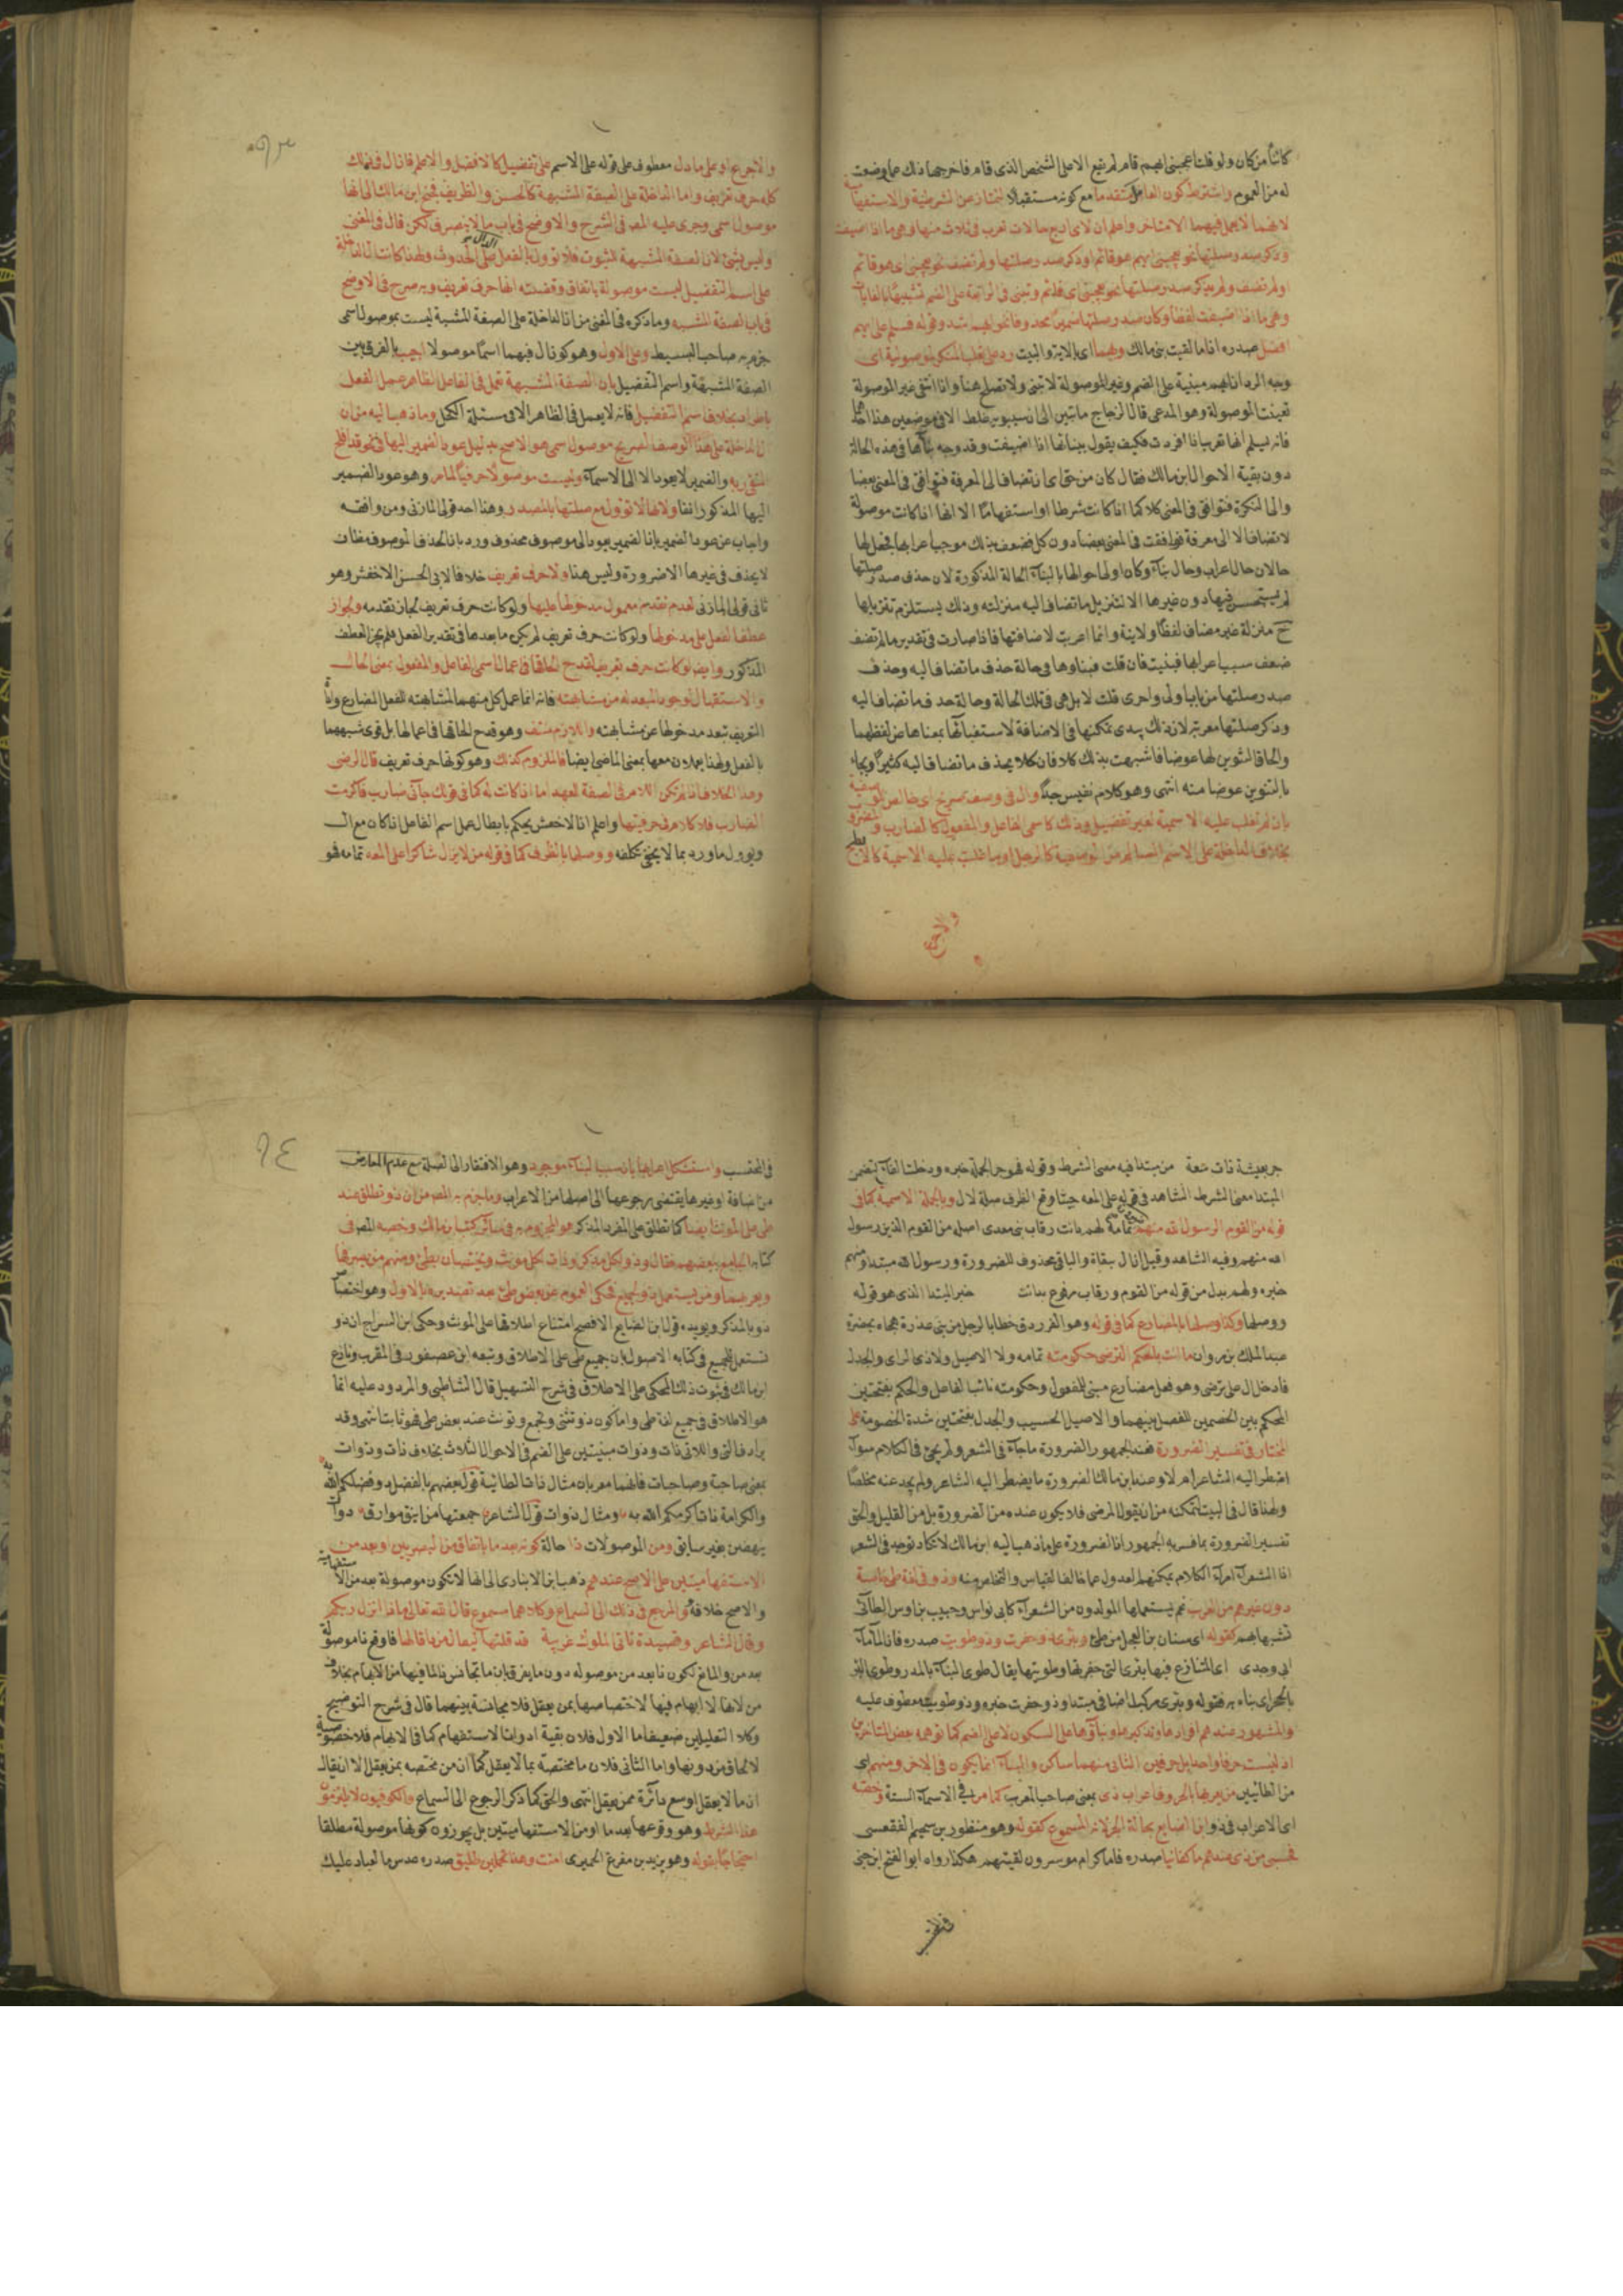 كائنا من كان ولو قلت اعجبني ايهم قام لم يقع الا على الشخص الذي قام فاخرجها ذلك عما وضعت
له من العموم واشترط كون العامل متقدما مع كونه مستقبلا لتمتاز عن الشرطية والاستفهامية
لانهما لا يعمل فيهما الا متاخر واعلم ان لاي اربع حالات تعرب في ثلاث منها وهي ما اذا اضيفت
وذكر صدر صلتها نحو يعجبني ايهم هو قائم او ذكر صدر صلتها ولم تضف نحو يعجبني اي هو قائم
او لم تضف ولم يذكر صدر صلتها نحو يعجبني اي قائم وتبنى في الرابعة على الضم تشبيها بالغايات
وهي ما اذا اضيفت لفظا وكان صدر صلتها ضميرا محذوفا نحو ايهم اشد وقوله فسلم على ايهم
افضل صدره اذا ما لقيت بني مالك وبهما اي بالاية والبيت رد على ثعلب المنكر لموصولية اي
وجه الرد انا ايهم مبنية على الضم وغير الموصولة لا تبنى ولا تصلح هنا واذا انتفى غير الموصولة
تعينت الموصولة وهو المدعى قال الزجاج ما تبين الي ان سيبويه غلط الا في موضعين هذا احدهما
فانه يسلم انها تعرب اذا افردت فكيف يقول ببنائها اذا اضيفت وقد وجه بنائها في هذه الحالة
دون بقية الاحوال ابن مالك فقال كان من حق اي ان تضاف الى المعرفة فتوافق في المعنى بعضا
والى النكرة فتوافق في المعنى كلا كما اذا كانت شرطا او استفهاما الا انها اذا كانت موصولة
لا تضاف الا الى معرفة فوافقت في المعنى بعضا دون كل فضعف بذلك موجب اعرابها فجعل لها
حالان حال اعراب وحال بناء وكان اولى احوالها بالبناء الحالة المذكورة لان حذف صدر صلتها
لم يستحسن فيها دون غيرها الا لتنزيل ما تضاف اليه منزلته وذلك يستلزم تنزيلها
ح منزلة غير مضاف لفظا ولا نية وانما اعربت لاضافتها فاذا صارت في تقدير ما لم تضف
ضعف سبب اعرابها فبنيت فان قلت فبناؤها في حالة حذف ما تضاف اليه وحذف
صدر صلتها من باب اولى واحرى قلت لا بل هي في تلك الحالة وحالة حذف ما تضاف اليه
وذكر صلتها معربة لان ذلك يبدي تمكنها في الاضافة لاستغنائها بمعناها عن لفظهما
والحاق التنوين لها عوضا فاشبهت بذلك كلا فان كلا يحذف ما تضاف اليه كثيرا ويجاء
بالتنوين عوضا منه انتهى وهو كلام نفيس جدا وال في وصف صريح اي خالص الوصفية
بان لم تغلب عليه الاسمية لغير تفضيل وذلك كاسمي الفاعل والمفعول كالضارب والمضروب
بخلاف الداخلة على الاسم السالم من الوصفية كالرجل او ما غلبت عليه الاسمية كالابطح
والاجرع
والاجرع او على ما دل معطوف على قوله على الاسم على تفضيل كالافضل والاعلم فان ال في ذلك
كله حرف تعريف واما الداخلة على الصفة المشبهة كالحسن والظريف فجنح ابن مالك الى انها
موصول اسمي وجرى عليه المصـ في الشرح والاوضح في باب ما لا ينصرف لكن قال في المغني
وليس بشئ لان الصفة المشبهة للثبوت فلا تؤول بالفعل الدال على الحدوث ولهذا كانت ال الداخلة
على اسم التفضيل ليست موصولة باتفاق وقضيته انها حرف تعريف وبه صرح في الاوضح
في باب الصفة المشبهه وما ذكره في المغني من ان الداخلة على الصفة المشبهة ليست بموصول اسمي
جزم به صاحب البسيط وعلى الاول وهو كون ال فيهما اسما موصولا اجيب بالفرق بين
الصفة المشبهة واسم التفضيل بان الصفة المشبهة تعمل في الفاعل الظاهر عمل الفعل
باطراد بخلاف اسم التفضيل فانه لا يعمل في الظاهر الا في مسئلة الكحل وما ذهب اليه من ان
ال الداخلة على هذا الوصف الصريح موصول اسمي هو الاصح بدليل عود الضمير اليها في نحو قد افلح
المتقي ربه والضمير لا يعود الا الى الاسماء وليست موصولا حرفيا لما مر وهو عود الضمير
اليها المذكور انفا ولانها لا تؤول مع صلتها بالمصدر وهذا احد قولي المازني ومن وافقه
واجاب عن عود الضمير بان الضمير يعود الى موصوف محذوف ورد بان الحذف الموصوف مظان
لا يحذف في غيرها الا ضرورة وليس هنا ولا حرف تعريف خلافا لابي الحسن الاخفش وهو
ثاني قولي المازني لعدم تقدم معمول مدخولها عليها ولو كانت حرف تعريف لجاز تقدمه ولجواز
عطف الفعل على مدخولها ولو كانت حرف تعريف لم يكن ما بعدها في تقدير الفعل فلم يجز العطف
المذكور وايضا لو كانت حرف تعريف لقدح الحاقها في اعمال اسمي الفاعل والمفعول بمعنى الحال
والاستقبال لوجود المبعد له من مشابهته فانه انما عمل كل منهما لمشابهته للفعل المضارع واداة
التعريف تبعد مدخولها عن مشابهته واللازم منتف وهو قدح الحاقها في اعمالها بل قوى شبههما
بالفعل ولهذا يعملان معها بمعنى الماضي ايضا فالملزوم كذلك وهو كونها حرف تعريف قال الرضي
وهذا الخلاف اذا لم تكن اللام في الصفة للعهد اما اذا كانت له كما في قولك جاءني ضارب فاكرمت
الضارب فلا كلام في حرفيتها واعلم ان الاخفش يحكم بابطال عمل اسم الفاعل اذا كان مع ال
ويؤول ما ورد بما لا يخفى تكلفه ووصلها بالظرف كما في قوله من لا يزال شاكرا على المعه تمامه فهو
حر بعيشة ذات سعة من مبتدا فيه معنى الشرط وقوله فهو حر الجملة خبره ودخلت الفاء لتضمن
المبتدا معنى الشرط الشاهد في قوله على المعه حيث وقع الظرف صلة لال وبالجملة الاسمية كما في
قوله من القوم الرسول الله منهم تمامه لهم دانت رقاب بني معد اي اصله من القوم الذين رسول
الله منهم وفيه الشاهد وقيل ان ال بقاة والباقي محذوف للضرورة ورسول الله مبتدا ومنهم
خبره ولهم بدل من قوله من القوم ورقاب مرفوع بدانت خبر المبتدا الذي هو قوله
ووصلها وكذا وصلها بالمضارع كما في قوله وهو الفرزدق خطابا لرجل من بني عذرة هجاه بحضرة
عبد الملك بن مروان ما انت بالحكم الترضى حكومته تمامه ولا الاصيل ولا ذي الراي والجدل
فادخل ال على ترضى وهو فعل مضارع مبني للمفعول وحكومته نائب الفاعل والحكم بفتحتين
المحكم بين الخصمين للفصل بينهما والاصيل الحسيب والجدل بفتحتين شدة الخصومة على
المختار في تفسير الضرورة فعند الجمهور الضرورة ما جاء في الشعر ولم يجئ في الكلام سواء
اضطر اليه الشاعر ام لا وعند ابن مالك الضرورة ما يضطر اليه الشاعر ولم يجد عنه مخلصا
ولهذا قال في البيت لتمكنه من ان يقول المرضي فلا يكون عنده من الضرورة بل من القليل والحق
تفسير الضرورة بما فسر به الجمهور اذ الضرورة على ما ذهب اليه ابن مالك لا تكاد توجد في الشعر
اذ الشعراء امراء الكلام يمكنهم العدول عما خالف القياس والتخلص منه وذو في لغة طي خاصة
دون غيرهم من العرب نعم يستعملها المولدون من الشعراء كابي نواس وحبيب بن اوس الطائي
تشبها بهم كقوله اي سنان بن الفحل من طئ وبئري ذو حفرت وذو طويت صدره فان الماء ماء
ابي وجدي اي المتنازع فيها بئري التي حفرتها وطويتها يقال طوى البناء بالمدر وطوى البئر
بالحجر اي بناه به فقوله وبئري مركب اضافي مبتدا وذو حفرت خبره وذو طويت معطوف عليه
والمشهور عندهم افرادها وتذكيرها وبناؤها على السكون لا على الضم كما توهمه بعض المتاخرين
اذ ليست حرفا واحدا بل حرفين الثاني منهما ساكن والبناء انما يكون في الاخر ومنهم اي
من الطائيين من يعربها بالحروف اعراب ذي بمعنى صاحب المعرب كما مر في الاسماء الستة وخصه
اي الاعراب في ذو ابن الضايع بحالة الجر لانه المسموع كقوله وهو منظور بن سحيم الفقعسي
فحسبي من ذي عندهم ما كفانيا صدره فاما كرام موسرون لقيتهم هكذا رواه ابو الفتح ابن جني
في المحتسب واستشكل اعرابها بان سبب البناء موجود وهو الافتقار الى الصلة مع عدم المعارض
من اضافة او غيرها يقتضي رجوعها الى اصلها من الاعراب وما جزم به المصـ من ان ذو تطلق عند
طي على المونث ايضا كما تطلق على المفرد المذكر هو المجزوم به في سائر كتب ابن مالك وخصه المصـ في
كتابه الجامع ببعضهم فقال وذو لكل مذكر وذات لكل مونث ويختصان بطئ ومنهم من يصرفها
ويعربهما ومن يستعمل ذو للجميع فحكى العموم عن بعض طئ بعد تصديره بالاول وهو اختصاص
ذو بالمذكر ويؤيده قول ابن الضايع الافصح امتناع اطلاقها على المونث وحكى ابن السراج ان ذو
تستعمل للجميع في كتابه الاصول بان جميع طي على الاطلاق وتبعه ابن عصفور في المقرب ونازع
ابن مالك في ثبوت ذلك المحكي على الاطلاق في شرح التسهيل قال الشاطبي والمردود عليه انما
هو الاطلاق في جميع لغة طي واما كون ذو تثنى وتجمع وتونث عند بعض طي فهو ثابت انتهى وقد
يرادف التي واللاتي ذات وذوات مبنيتين على الضم في الاحوال الثلاث بخلاف ذات وذوات
بمعنى صاحبة وصاحبات فانهما معربان مثال ذات الطائية قول بعضهم بالفضل ذو فضلكم الله به
والكرامة ذات اكرمكم الله به ومثال ذوات قول الشاعر جمعتها من اينق موارق ذوات
ينهضن بغير سائق ومن الموصولات ذا حالة كونه بعد ما باتفاق من البصريين او بعد من
الاستفهاميتين على الاصح عندهم ذهب ابن الانباري الى انها لا تكون موصولة بعد من الاستفهامية
والاصح خلافه والمرجع في ذلك الى السماع وكلاهما مسموع قال الله تعالى ماذا انزل ربكم
وقال الشاعر وقصيدة تاتي الملوك غريبة قد قلتها ليقال من ذا قالها فاوقع ذا موصولة
بعد من والمانع لكون ذا بعد من موصوله دون ما يفرق بان ما تجانس ذا لما فيها من الابهام بخلاف
من لانها لا ابهام فيها لاختصاصها بمن يعقل فلا مجانسة بينهما قال في شرح التوضيح
وكلا التعليلين ضعيف اما الاول فلان بقية ادوات الاستفهام كما في الابهام فلا خصوصية
لالحاق من دونها واما الثاني فلان ما مختصة بما لا يعقل كما ان من مختصه بمن يعقل الا ان يقال
ان ما لا يعقل اوسع دائرة ممن يعقل انتهى والحق كما ذكر الرجوع الى السماع والكوفيون لا يلتزمون
هذا الشرط وهو وقوعها بعد ما او من الاستفهاميتين بل يجوزون كونها موصولة مطلقا
احتجاجا بقوله وهو يزيد بن مفرغ الحميري امنت وهذا تحملين طليق صدره عدس ما لعباد عليك